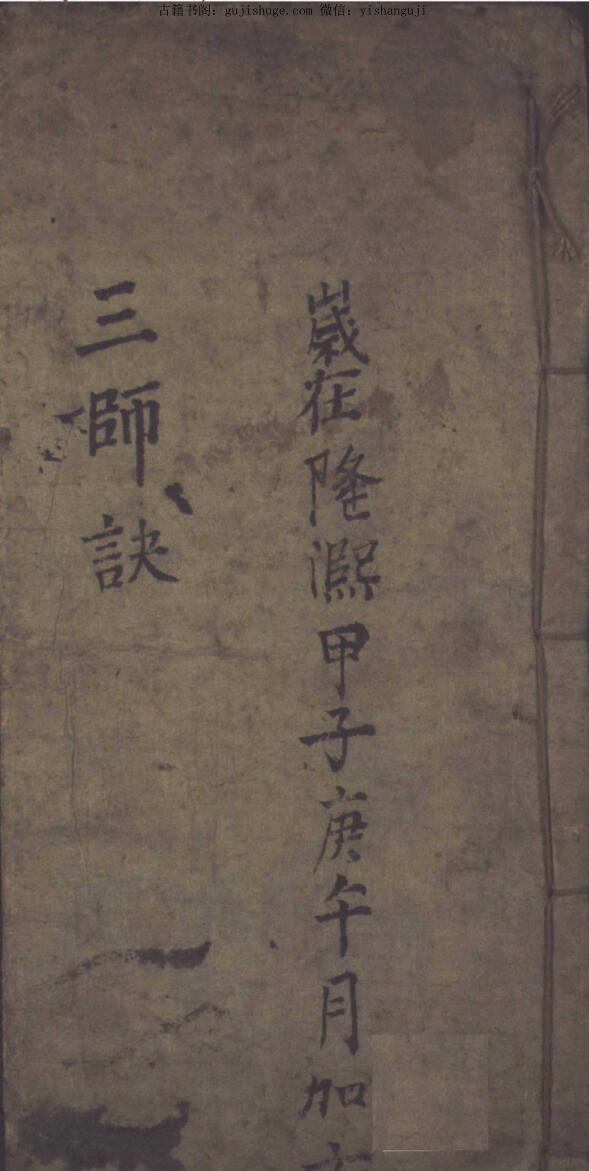 古籍书阁：gujishuge.com 微信：yishanguji
歲在隆熙甲子庚午月加
三師訣